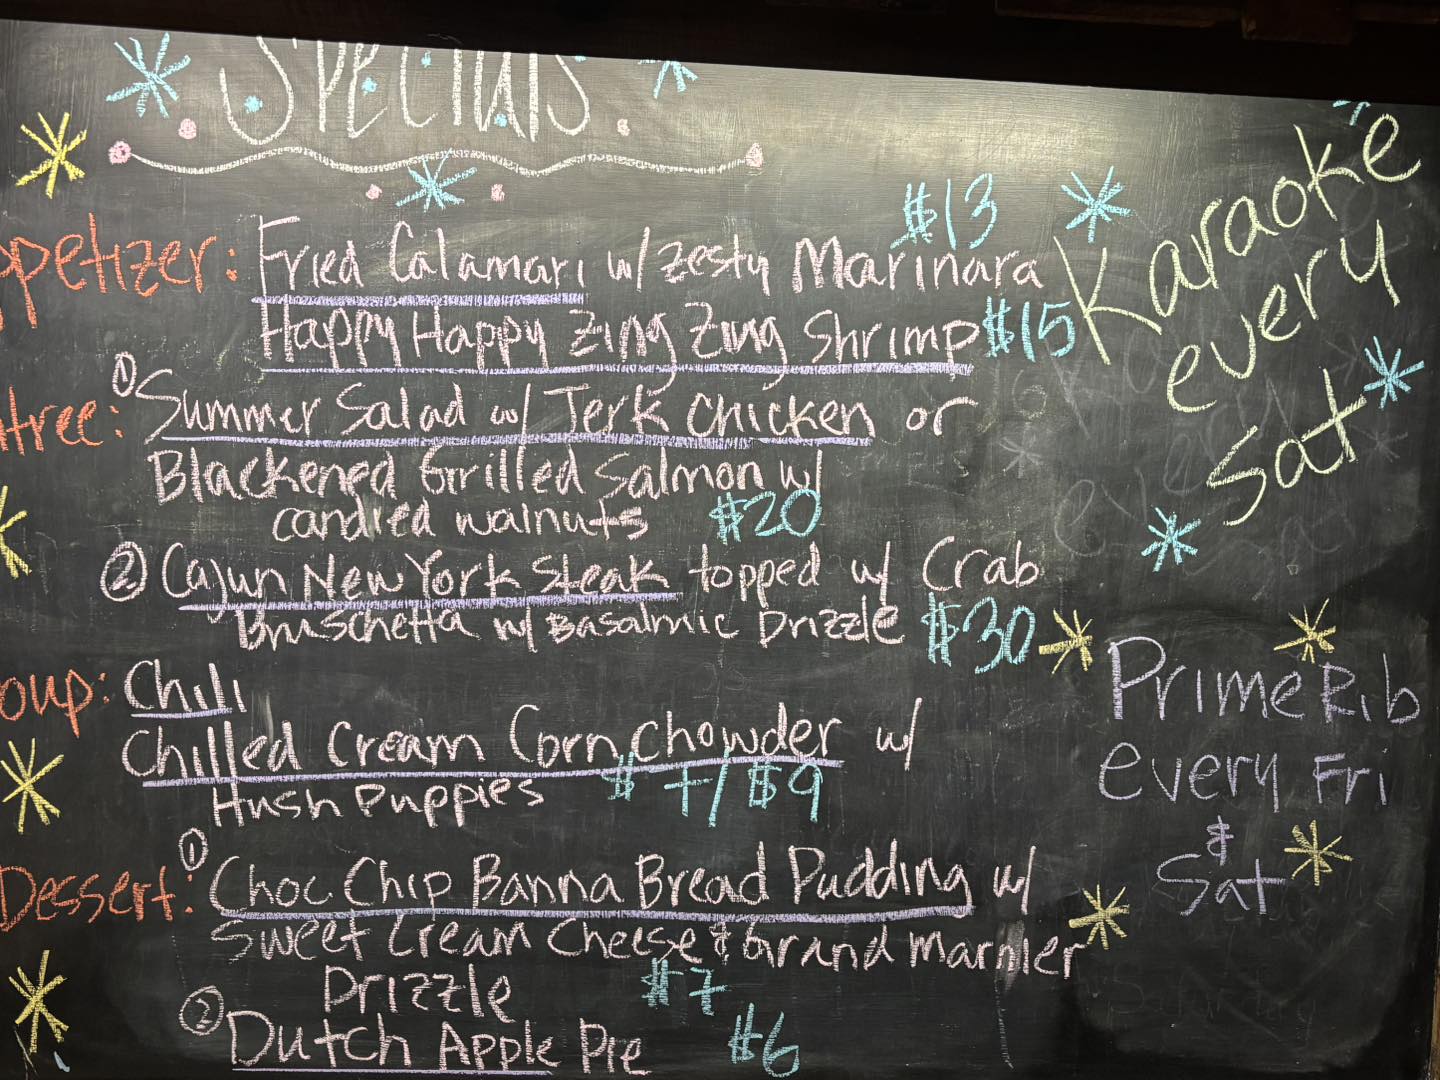 Specials
$13
ppetizer: Fried Calamari w/ zesty Marinara
Happy Happy Zing Zing Shrimp $15
ntree: ① Summer Salad w/ Jerk Chicken or
Blackened Grilled Salmon w/
candied walnuts $20
② Cajun New York Steak topped w/ Crab
Bruschetta w/ Basalmic Drizzle $30
oup: Chili
Chilled Cream Corn Chowder w/
Hush Puppies $7/$9
Dessert: ① Choc Chip Banna Bread Pudding w/
Sweet Cream Cheese & Grand Marnier
Drizzle $7
② Dutch Apple Pie $6
Karaoke
every
Sat
Prime Rib
every Fri
&
Sat